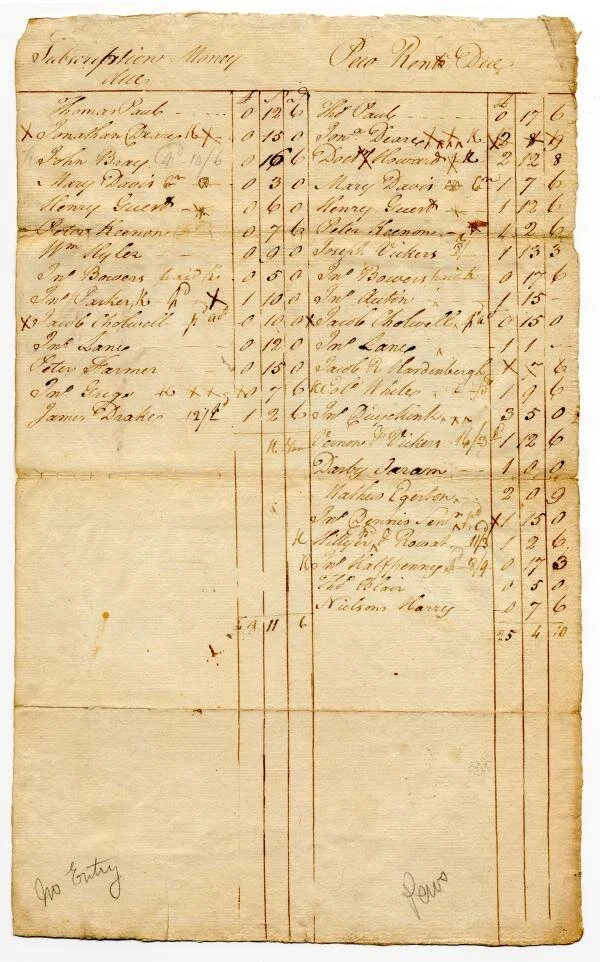 Subscription Money Pew Rents Due
due
£ S d £
Thomas Paul 0 12 6 Thos Paul 0 17 6
X Jonathan Deare K X 0 15 0 Jona Deare X X K
John Bray 10/6 0 16 6 Doctr Howard X K 2 12 8
Mary Davis 0 3 0 Mary Davis 1 7 6
Henry Guest 0 6 0 Henry Guest 1 12 6
Peter Keenon 0 7 6 Peter Keenon 1 2 6
Wm Kyler 0 9 0 Joseph Vickers 1 13 3
Jno Bowers paid 0 5 0 Jno Bowers 0 17 6
Jno Parker K pd X 1 10 0 Jno Auton 1 15 -
X Jacob Cholwell pd 0 10 0 X Jacob Cholwell pd 0 15 0
Jno Lane 0 12 0 Jno Lane 1 1 -
Peter Farmer 0 15 0 Jacob R Hardenbergh X 7 6
Jno Grigs K X X 0 7 6 K Col White 1 9 6
James Drake 12/ 1 2 6 Jno 3 5 0
Vernon & Vickers 16/3 1 12 6
Darby Oaram 1 0 0
Mathew Egerton 2 0 9
Jno Dennis Senr pd X 1 15 0
K Hillyer & Rowat 11/3 1 2 6
K Jno Halfhenny 8/4 0 17 3
Thos Blair 0 5 0
Nielsons Harry 0 7 6
£ 8 11 6 25 4 10
No Entry
Pews